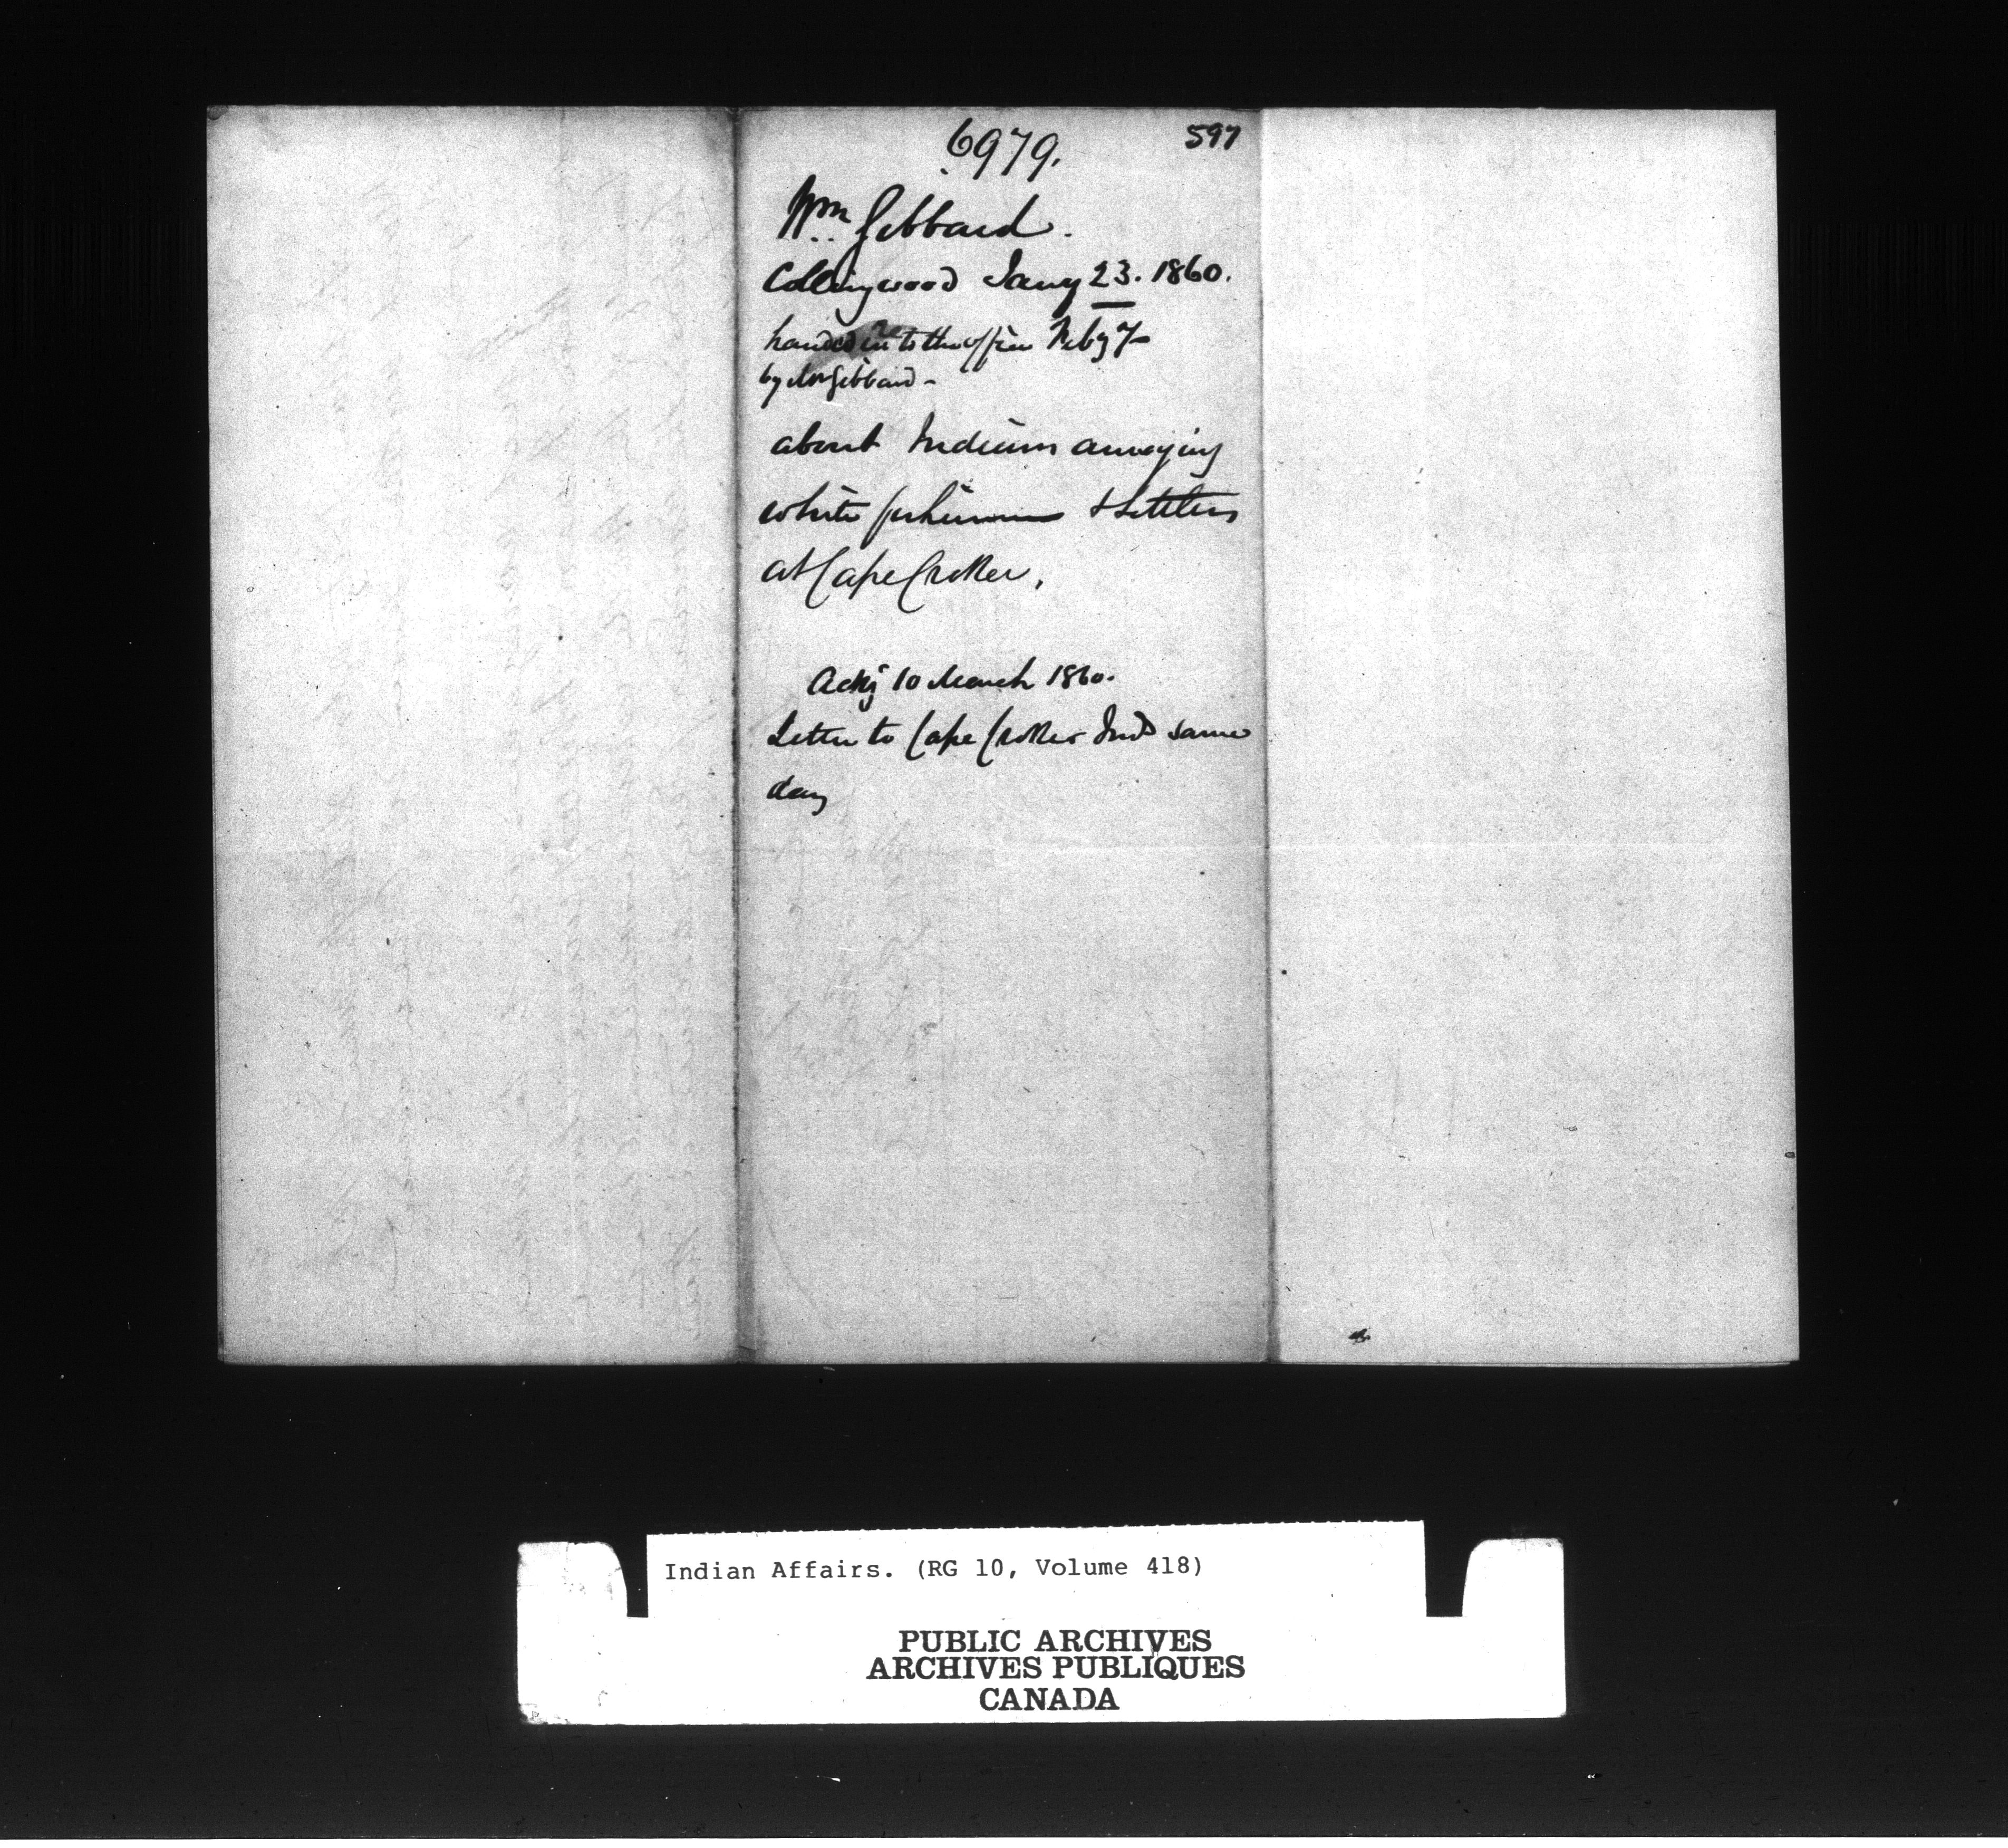 6979.
597
Wm Gibbard.
Collingwood Jany 23. 1860.
handed in to the office Feby 7
by Mr Gibbard -
about Indians annoying
white fishermen & settlers
at Cape Croker.
Ackg 10 March 1860.
Letter to Cape Croker Inds same
day
Indian Affairs. (RG 10, Volume 418)
PUBLIC ARCHIVES
ARCHIVES PUBLIQUES
CANADA